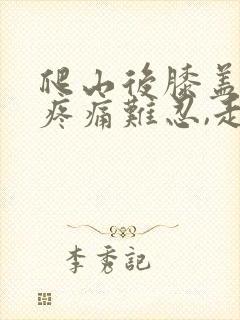 爬山後膝盖
疼痛難忍,走
李秀記